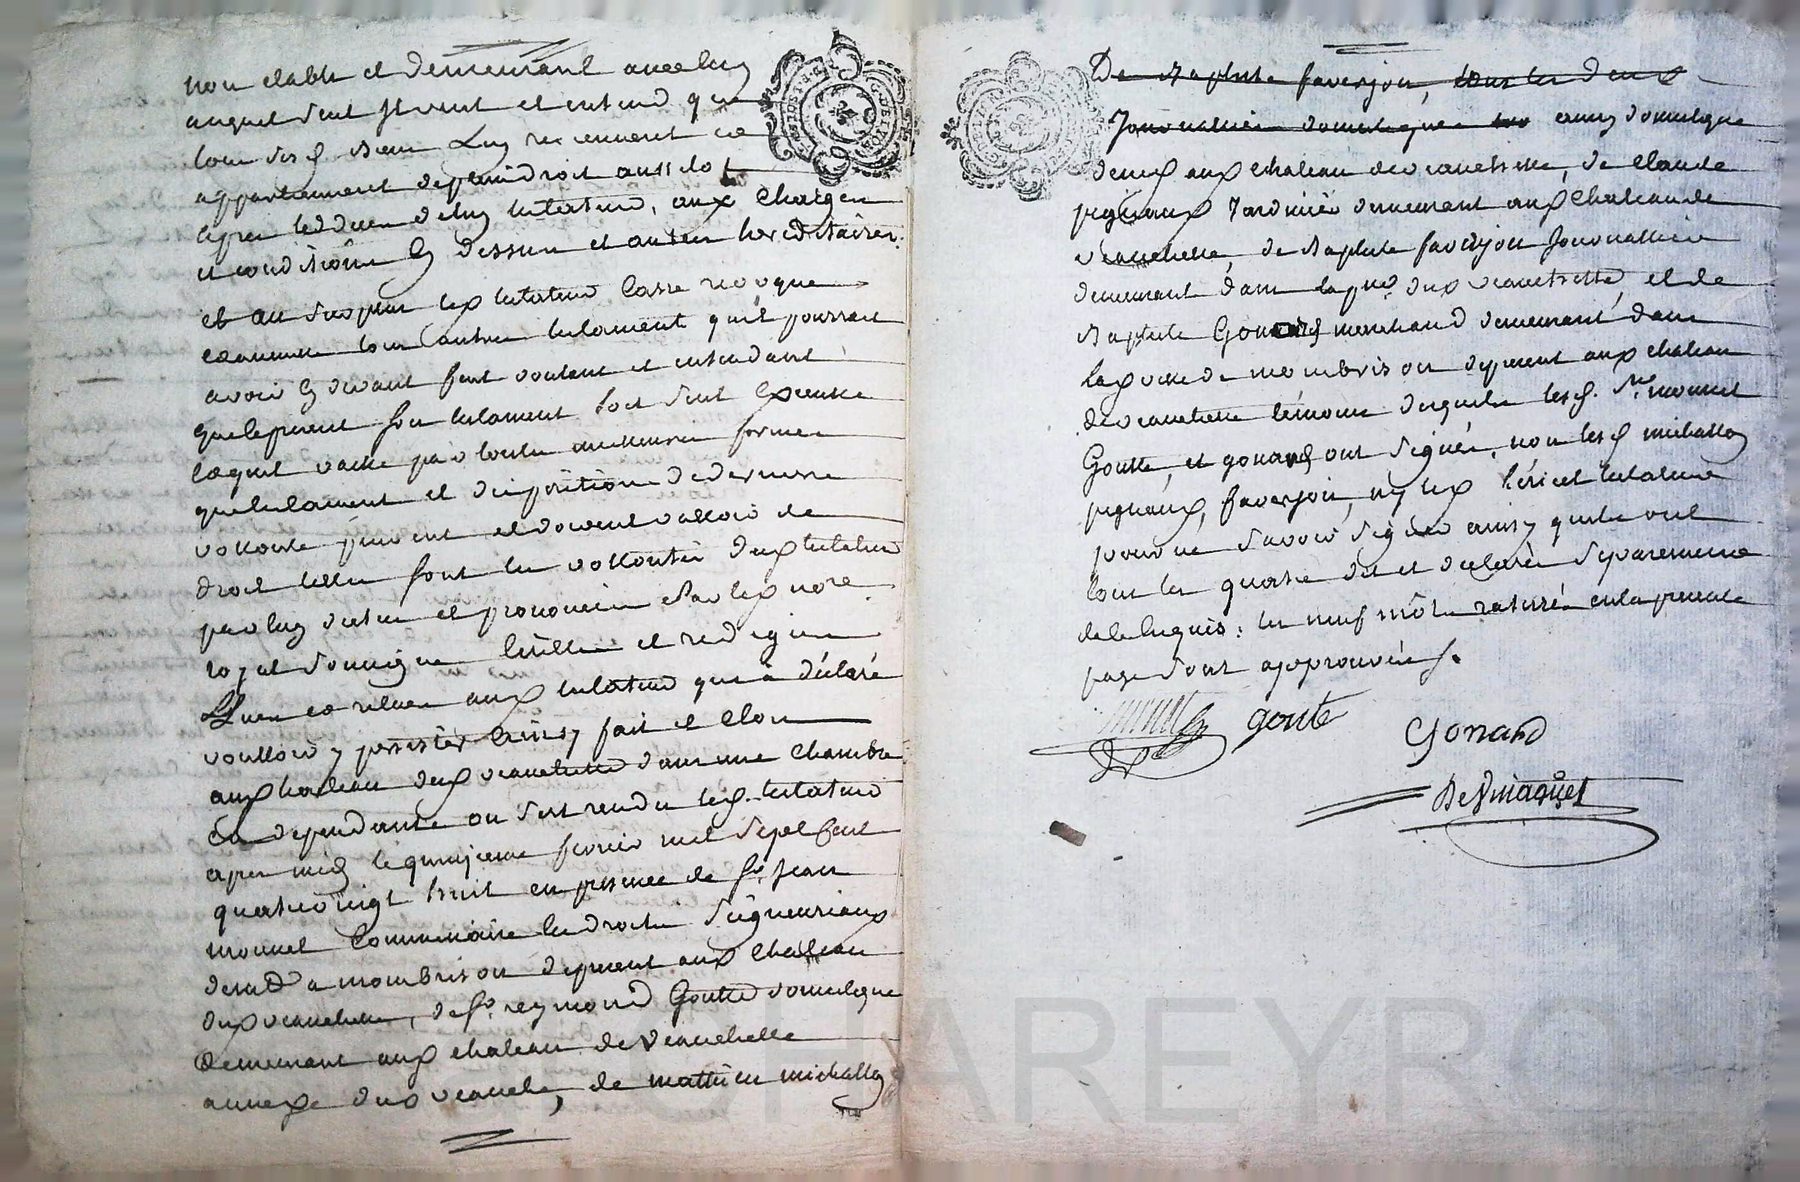 non etablie et demeurant avec luy
auquel dit et entend que
tous ses biens luy reviennent et
appartiennent de plein droit aussitot
apres le deces de luy testateur, aux charges
et conditions cy dessus et autres hereditaires.
et au surplus led testateur casse revoque
et annulle tous autres testaments qu'il pourrait
avoir cy devant fait voulant et entendant
que le present son testament soit seul execute
lequel vaille par toutes meilleures formes
que testament et disposition de derniere
vollonte peuvent et doivent valloir de
droit telles sont les vollontés dud testateur
par luy dictées et prononcées aud not.re
royal soussigné et redigées
leues et releues aud testateur qui a déclaré
voulloir y persister ainsy fait et clos
au chateau dud veauchette dans une chambre
en dependante ou s'est rendu led. testateur
apres midy le quinzieme fevrier mil sept cent
quatre vingt huit en presence de Sr. Jean
monnet commissaire es droits seigneuriaux
demt a montbrison de present aud chateau
dud veauchette, de Sr. reymond Goutte domestique
demeurant aud chateau de veauchette
annexe dud veauche, de mathieu michallon
De Baptiste faverjon, tous les deux
Journaliers domestiques aussy domestique
demt aud chateau de veauchette, de claude
pigneaux Jardinier demeurant aud chateau de
veauchette, de Baptiste faverjon Journallier
demeurant dans la psse dud veauchette et de
Baptiste Gonard marchand demeurant dans
la ville de montbrison de present aud chateau
de veauchette témoins desquels lesd. Srs monnet
Goutte, et gonard ont signés, non lesd michallon
pigneaux, faverjon, ny led testateur
pour ne savoir signer ainsy qu'ils ont
tous les quatre dit et déclaré séparement
de ce enquis: les neuf mots raturés en la presente
page sont approuvés.
goute
Gonard